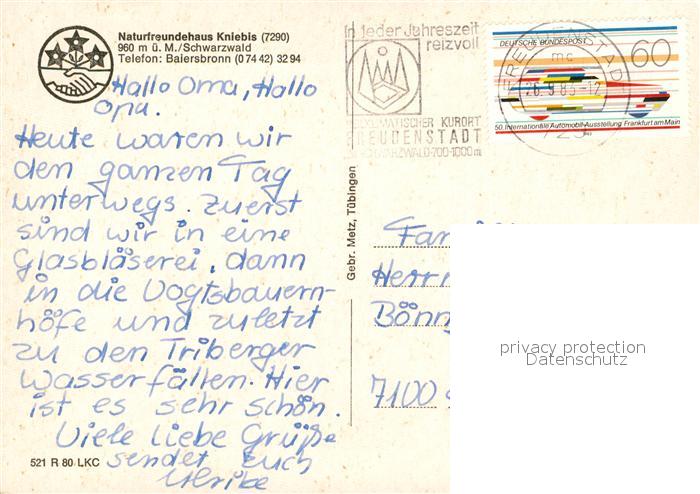 Naturfreundehaus Kniebis (7290)
960 m ü. M./Schwarzwald
Telefon: Baiersbronn (0 74 42) 32 94
In jeder Jahreszeit
reizvoll
KLIMATISCHER KURORT
FREUDENSTADT
SCHWARZWALD 700-1000m
FREUDENSTADT
mc
26.9.85-12
DEUTSCHE BUNDESPOST
60
50. Internationale Automobil-Ausstellung Frankfurt am Main
Hallo Oma, Hallo
Opa.
Heute waren wir
den ganzen Tag
unterwegs. Zuerst
sind wir in eine
Glasbläserei, dann
in die Vogtsbauern-
höfe und zuletzt
zu den Triberger
Wasserfällen. Hier
ist es sehr schön.
Viele liebe Grüße
sendet Euch
Ulrike
521 R 80 LKC
Gebr. Metz, Tübingen
Fam
Herrn
Bönn
7100
privacy protection
Datenschutz